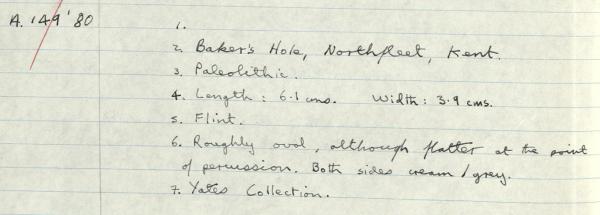 A.149'80
1.
2. Baker's Hole, Northfleet, Kent.
3. Paleolithic.
4. Length: 6.1 cms. Width: 3.9 cms.
5. Flint.
6. Roughly oval, although flatter at the point
of percussion. Both sides cream/grey.
7. Yates Collection.